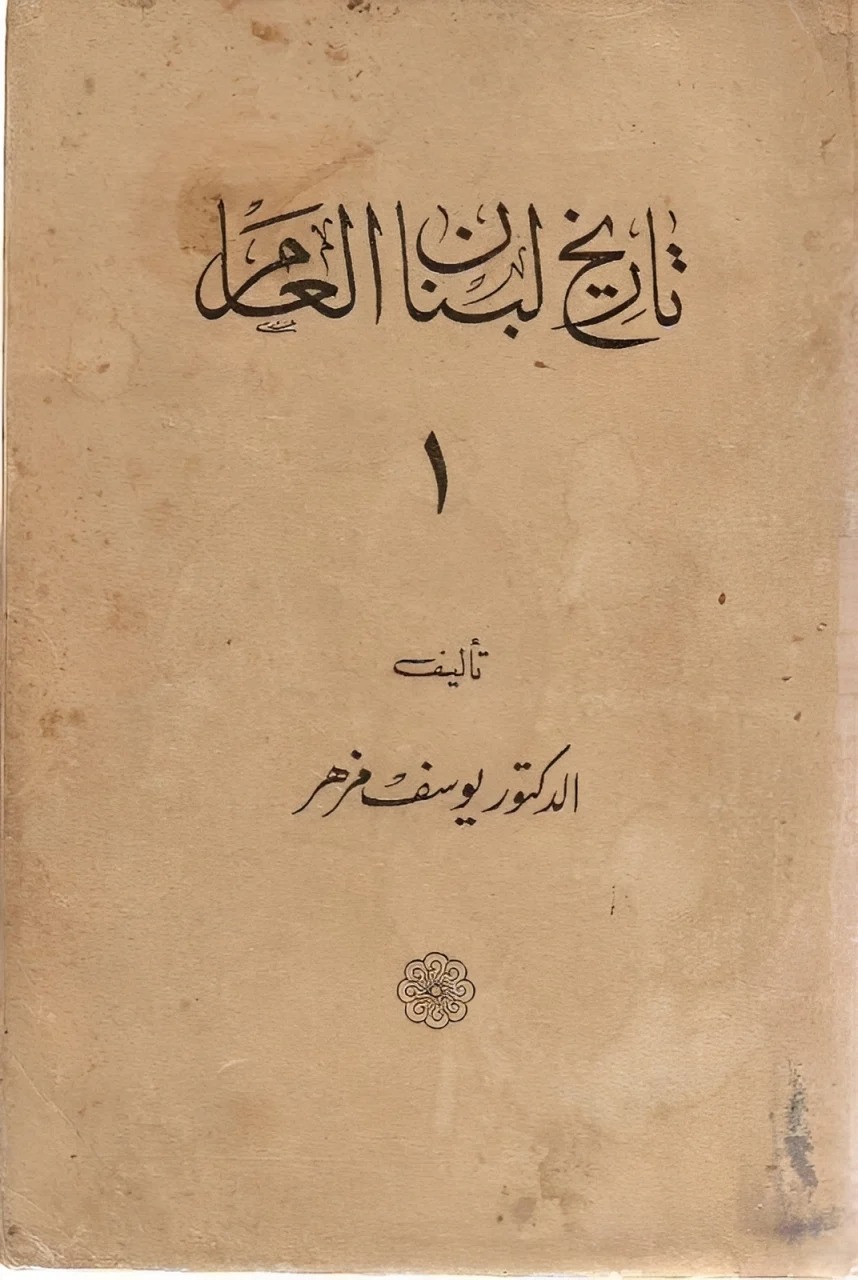 تاريخ لبنان العام
١
تأليف
الدكتور يوسف مزهر